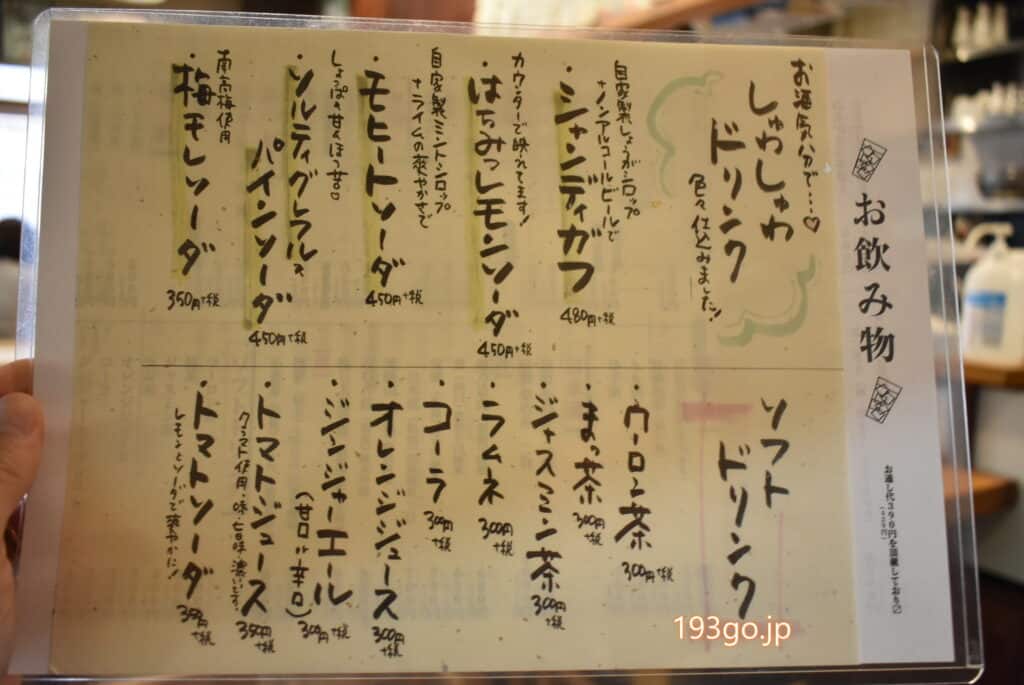 お飲み物
お通し代390円を頂戴しております
(429円)
お酒気分で…♡
しゅわしゅわ
ドリンク
色々仕込みました!
・シャンディガフ
480円+税
自家製しょうがシロップ
+ノンアルコールビールで
・はちみつレモンソーダ
450円+税
カウンターで映れてます!
・モヒートソーダ
450円+税
自家製ミントシロップ
+ライムの爽やかさで
・ソルティグレフル&
パインソーダ
450円+税
しょっぱ&甘&ほろ苦
・梅モレソーダ
350円+税
南高梅使用
ソフト
ドリンク
・ウーロン茶
300円+税
・まっ茶
300円+税
・ジャスミン茶
300円+税
・ラムネ
300円+税
・コーラ
300円+税
・オレンジジュース
300円+税
・ジンジャーエール
(甘口 辛口)
300円+税
・トマトジュース
350円+税
・トマトソーダ
350円+税
レモンとソーダで爽やかに!
193go.jp